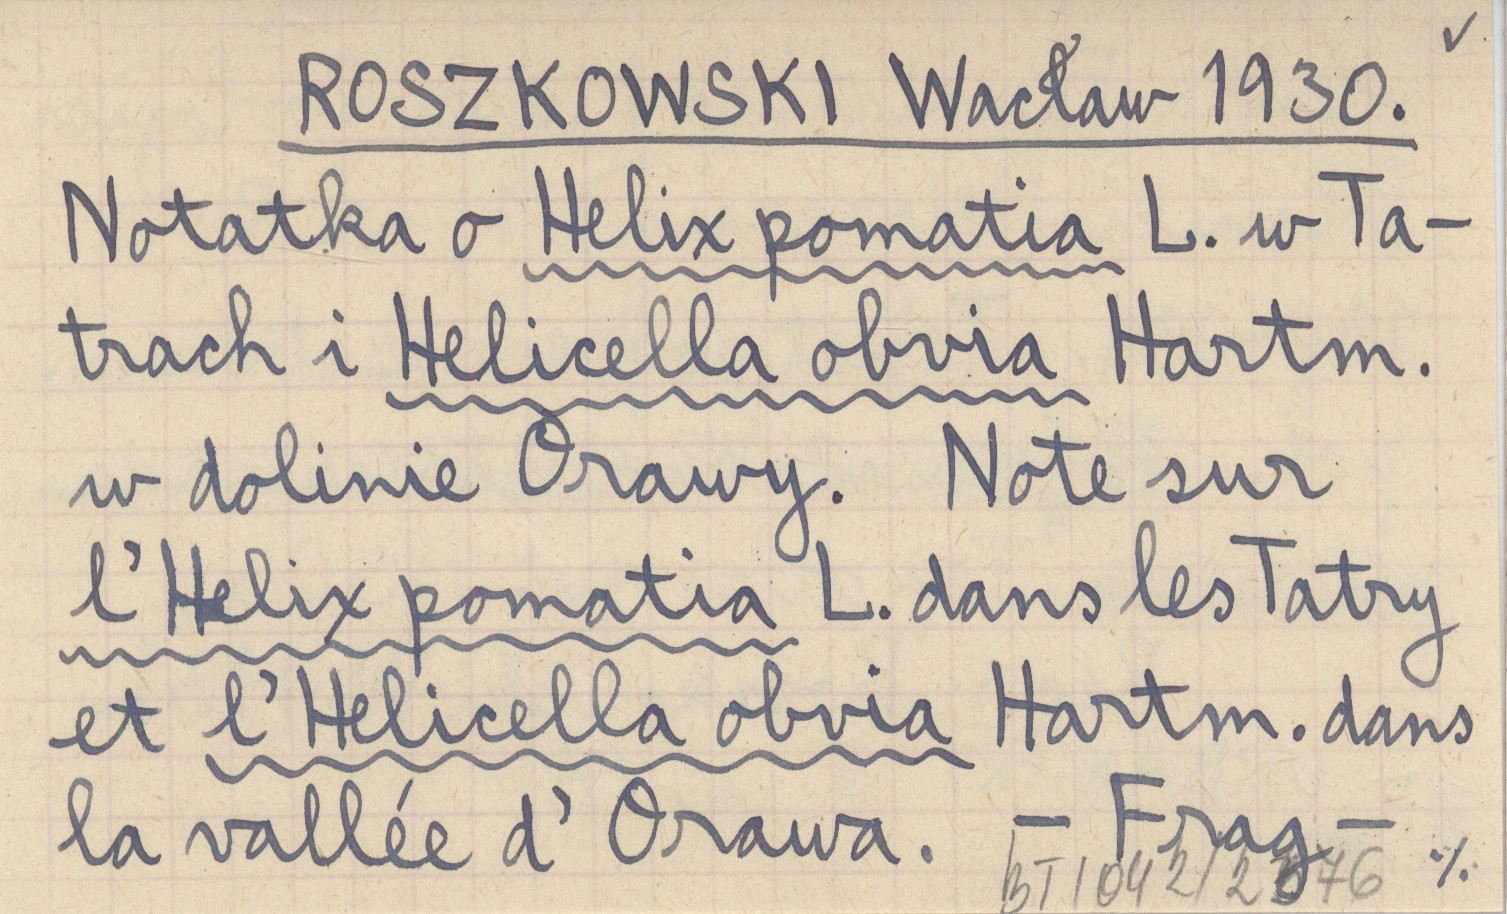 ROSZKOWSKI Wacław 1930.
Notatka o Helix pomatia L. w Ta-
trach i Helicella obvia Hartm.
w dolinie Orawy. Note sur
l'Helix pomatia L. dans les Tatry
et l'Helicella obvia Hartm. dans
la vallée d'Orawa. - Frag -
BT/042/2